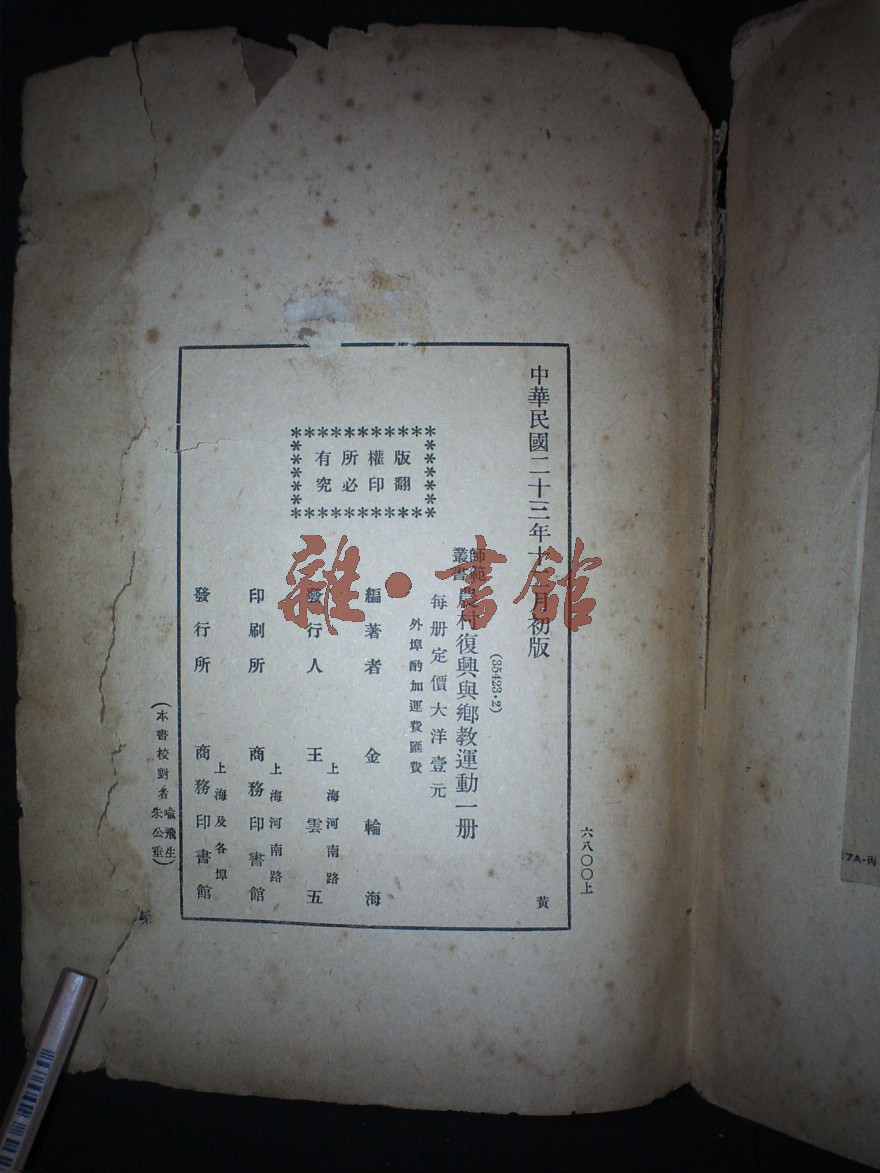 中華民國二十三年十月初版
黄
六八〇〇上
(35423·2)
師範
叢書
農村復興與鄉教運動一册
每册定價大洋壹元
外埠酌加運費匯費
版權所有
翻印必究
編著者 金輪海
上海河南路
發行人 王雲五
上海河南路
印刷所 商務印書館
上海及各埠
發行所 商務印書館
(本書校對者 喻飛生
朱公垂)
雜·書館